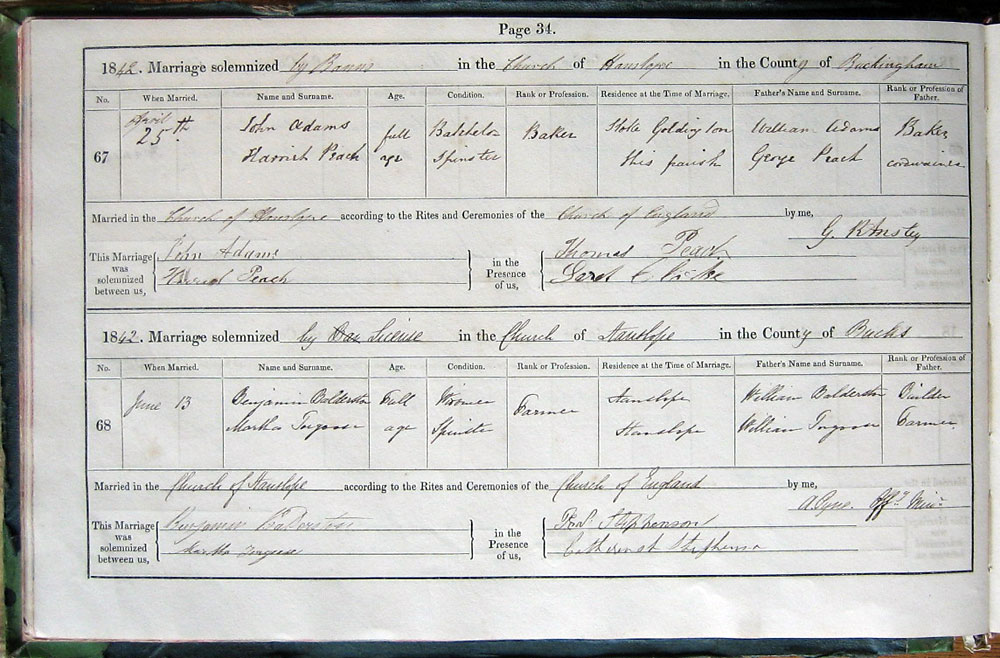 Page 34.
1842. Marriage solemnized by Banns in the Church of Hanslope in the County of Buckingham
No. When Married. Name and Surname. Age. Condition. Rank or Profession. Residence at the Time of Marriage. Father's Name and Surname. Rank or Profession of Father.
67 April 25th John Adams full Batchelor Baker Stoke Goldington William Adams Baker
Harriet Peach age Spinster this parish George Peach cordwainer
Married in the Church of Hanslope according to the Rites and Ceremonies of the Church of England by me,
This Marriage was solemnized between us, John Adams in the Presence of us, Thomas Peach
Harriet Peach
1842. Marriage solemnized by License in the Church of Hanslope in the County of Bucks
No. When Married. Name and Surname. Age. Condition. Rank or Profession. Residence at the Time of Marriage. Father's Name and Surname. Rank or Profession of Father.
68 June 13 Benjamin Balderston Full Widower Farmer Hanslope William Balderston Builder
Martha age Spinster Hanslope William Farmer
Married in the Church of Hanslope according to the Rites and Ceremonies of the Church of England by me,
This Marriage was solemnized between us, Benjamin Balderston in the Presence of us, Stephenson
Martha Stephenson